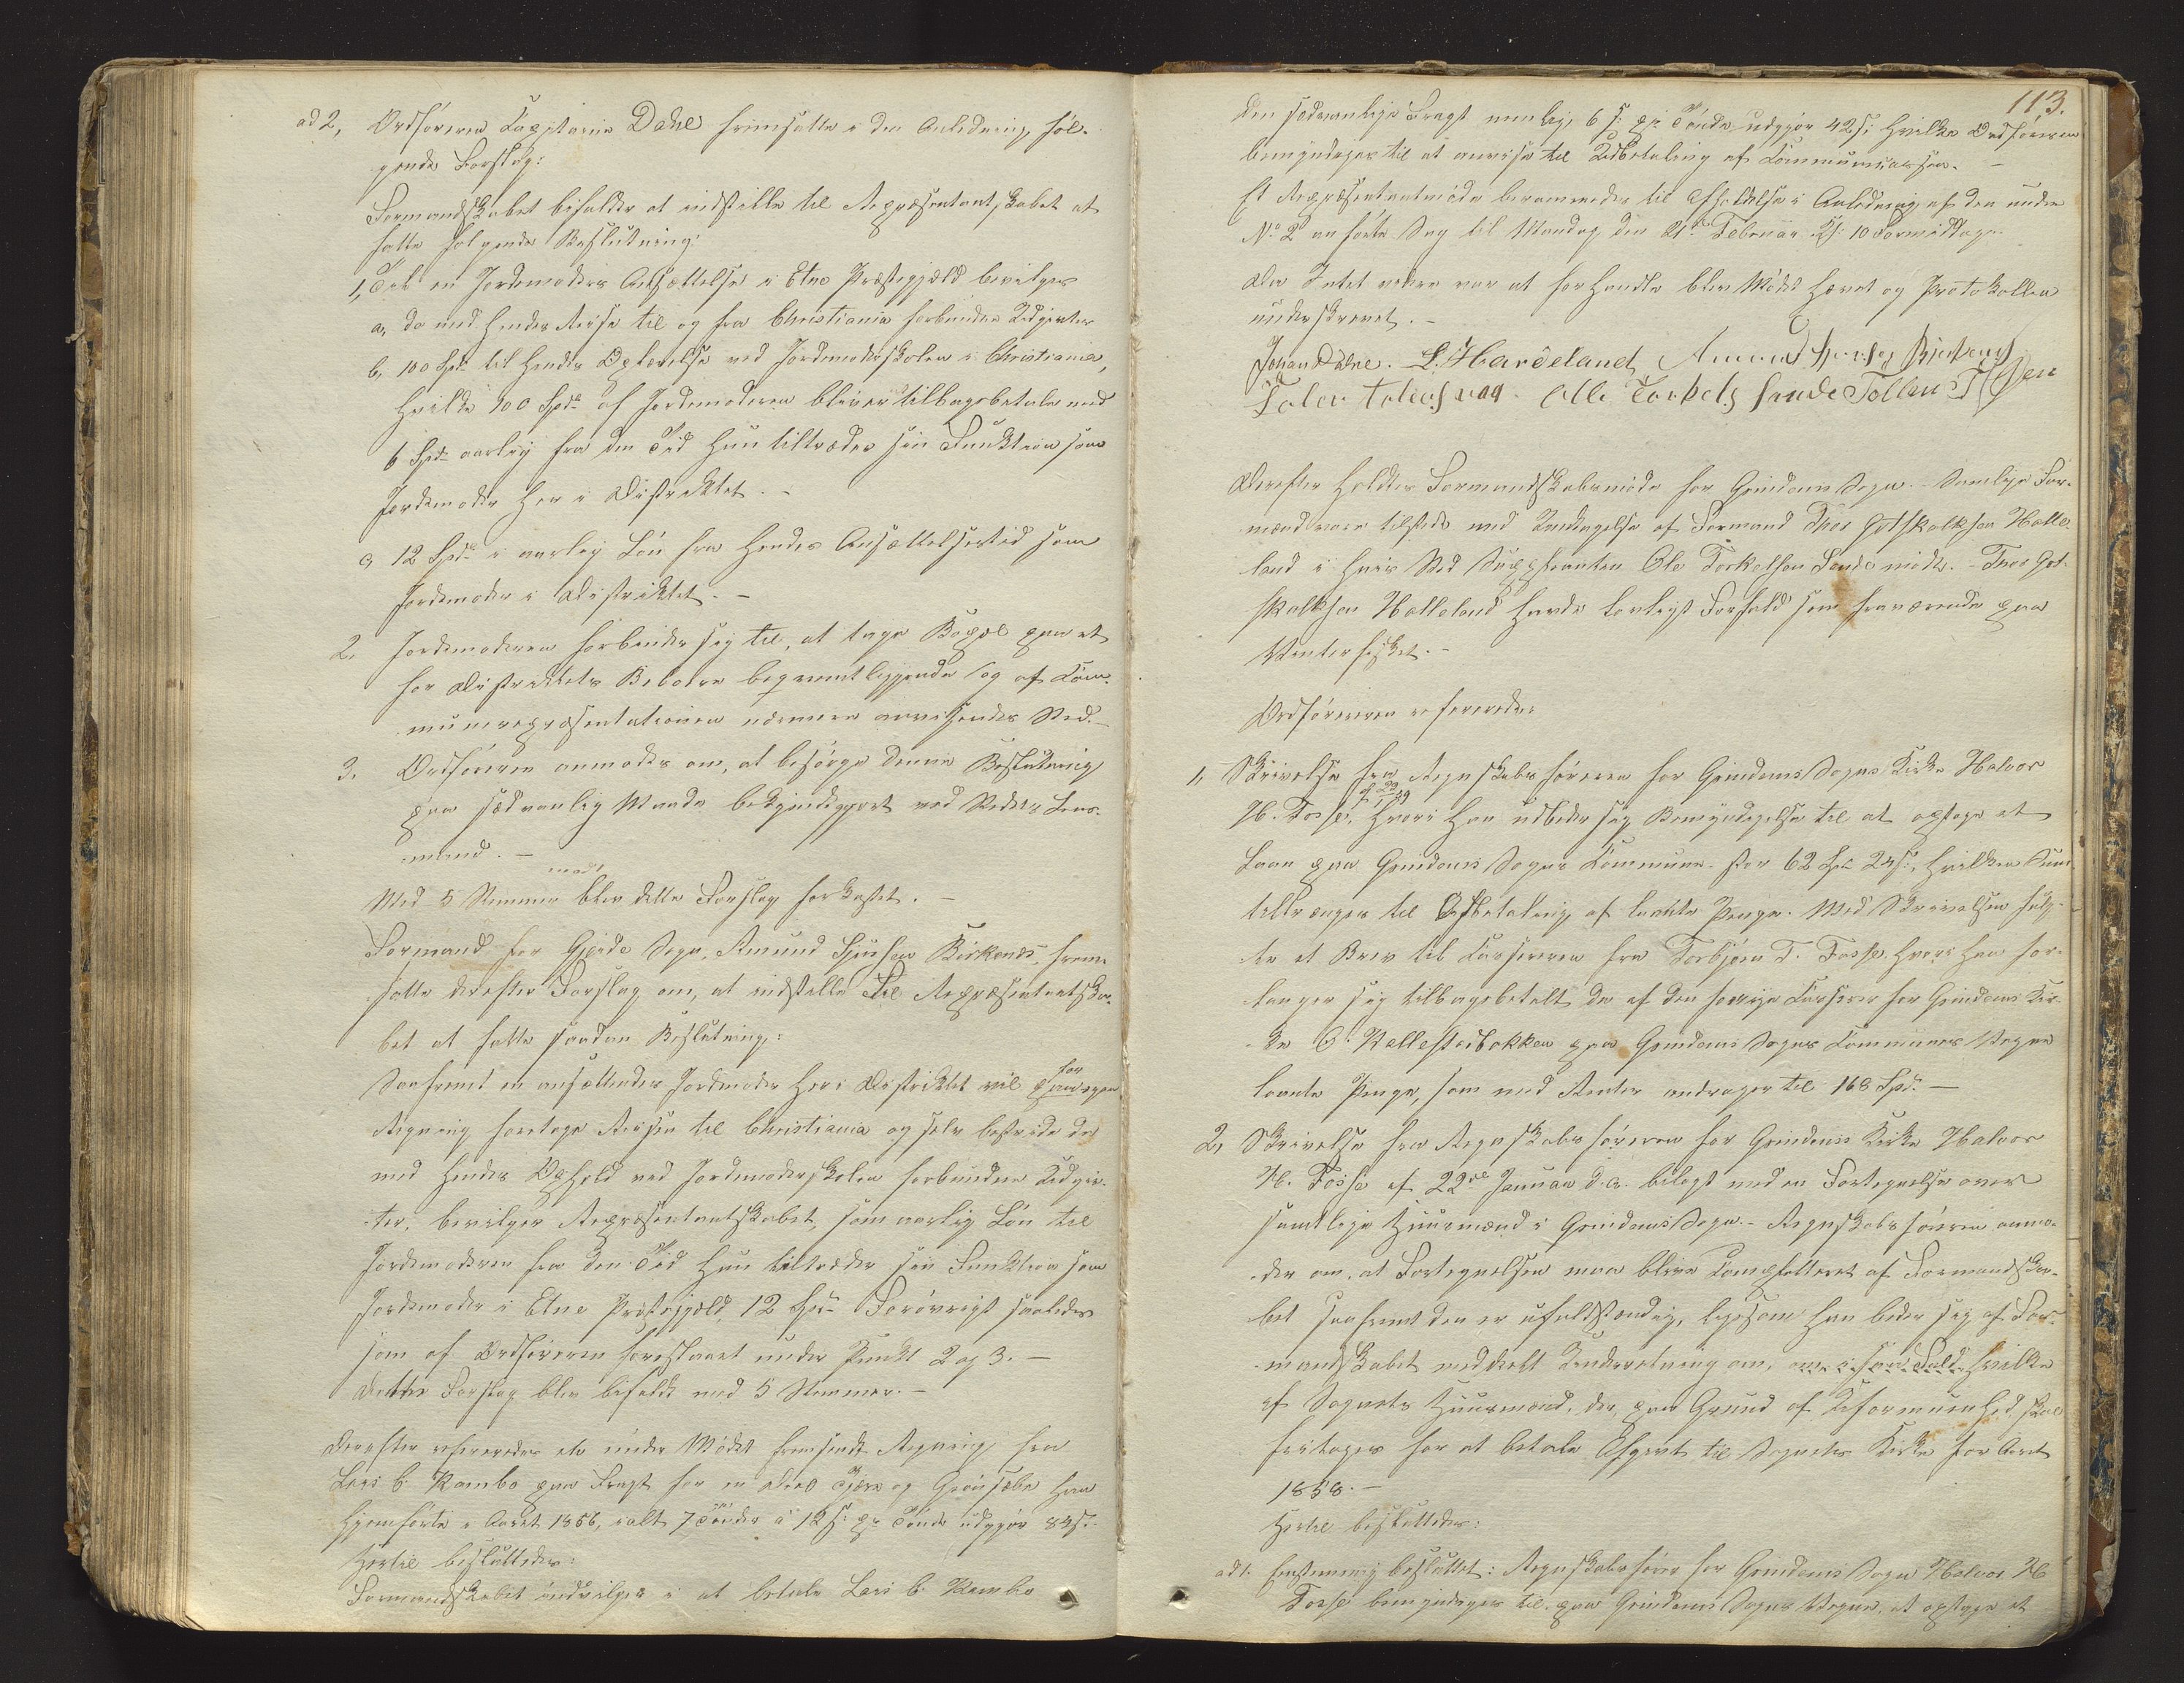 ad 2, Ordføreren Capitaine Dahl fremsatte i den Anledning føl-
gende Forslag:
Formandskabet bifalder at indstille til Repræsentantskabet at
fatte følgende Beslutning:
1, Til en Jordemoders Ansættelse i Etne Præstegjæld bevilges
a, de med hendes Reise til og fra Christiania forbundne Udgivter
b, 100 Spd. til hendes Oplærelse ved Jordemoderskolen i Christiania,
hvilke 100 Spd. af Jordemoderen bliver tilbagebetale med
6 Spd. aarlig fra den Tid hun tiltræder sin Funktion som
Jordemoder her i Distriktet. –
c, 12 Spd. i aarlig Løn fra hendes Ansættelsestid som
Jordemoder i Distriktet. –
2. Jordemoderen forbinder sig til, at tage Bopæl paa et
for Distriktets Beboere beqvemt liggende og af Com-
munerepræsentationen nærmere anvisendes Sted. –
3. Ordføreren anmodes om, at besørge denne Beslutning
paa sædvanlig Maade bekjendtgjort ved Stedets Lens-
mand. –
Med 5 Stemmer mod 1 blev dette Forslag forkastet. –
Formand for Gjerde Sogn, Amund Sjursen Birkenes, frem-
satte derefter Forslag om, at indstille til Repræsentantska-
bet at fatte saadan Beslutning:
Saafremt en ansættendes Jordemoder her i Distriktet vil for egen
Regning foretage Reisen til Christiania og selv bestride de
med hendes Ophold ved Jordemoderskolen forbundne Udgiv-
ter, bevilger Repræsentantskabet som aarlig Løn til
Jordemoderen fra den Tid hun tiltræder sin Funktion som
Jordemoder i Etne Præstegjæld, 12 Spd. Forøvrigt saaledes
som af Ordføreren foreslaaet under Punkt 2 og 3. –
Dette Forslag blev bifaldt med 5 Stemmer. –
Derefter refereredes en under Mødet fremsendt Regning fra
Lars C. Rambo paa Fragt for en Deel Tjære og Grønsæbe han
hjemførte i Aaret 1856, ialt 7 Tønder á 12 s. pr. Tønde udgjør 84 s.
Hertil besluttedes:
Formandskabet indvilger i at betale Lars C. Rambo
113.
den sædvanlige Fragt nemlig 6 s. pr. Tønde udgjør 42 s. hvilke Ordføreren
bemyndiges til at anvise til Udbetaling af Communecassen. –
Et Repræsentantmøde berammedes til Afholdelse i Anledning af den under
No. 2 anførte Sag til Mandag den 21. Februar Kl. 10 Formiddag.
Da Intet videre var at forhandle blev Mødet hævet og Protokollen
underskrevet. –
Johan Dahl. L. Hardeland Amund Sjursen Birkenes
Ole Torkels Sande Tollev T
Derefter holdtes Formandskabsmøde for Grindems Sogn. – Samtlige For-
mænd vare tilstede med Undtagelse af Formand Thor Gotskalksen Halle-
land i hvis Sted Suppleanten Ole Torkelsen Sande mødte. – Thor Got-
skalksen Halleland havde lovligt Forfald som fraværende paa
Vinterfisket. –
Ordføreren refererede:
1, Skrivelse fra Regnskabsføreren for Grindems Sogns Kirke Halvor
H. Fosse, hvori han udbeder sig Bemyndigelse til at optage et
Laan paa Grindems Sogns Commune stor 62 Spd. 24 s., hvilken Sum
tiltrænges til Afbetaling af laante Penge. Med Skrivelsen fulg-
te et Brev til Cassereren fra Torbjørn T. Fosse hvori han for-
langer sig tilbagebetalt de af den forrige Casserer for Grindems Kir-
ke O. Kallestadbakken paa Grindems Sogns Communes Vegne
laante Penge, som med Renter andrager til 168 Spd. –
2, Skrivelse fra Regnskabsføreren for Grindems Kirke Halvor
H. Fosse af 22de Januar d.A. bilagt med en Fortegnelse over
samtlige Huusmænd i Grindems Sogn. – Regnskabsføreren anmo-
der om, at Fortegnelsen maa blive completteret af Formandska-
bet saafremt den er ufuldstændig, ligesom han beder sig af For-
mandskabet meddeelt Underretning om, hvilke
af Sognets Huusmænd, der paa Grund af Uformuenhed skal
fritages for at betale Afgivt til Sognets Kirke for Aaret
1858. –
Hertil besluttedes:
ad 1. Eenstemmig besluttet: Regnskabsfører for Grindems Sogn Halvor H
Fosse bemyndiges til paa Grindems Sogns Vegne, at optage et